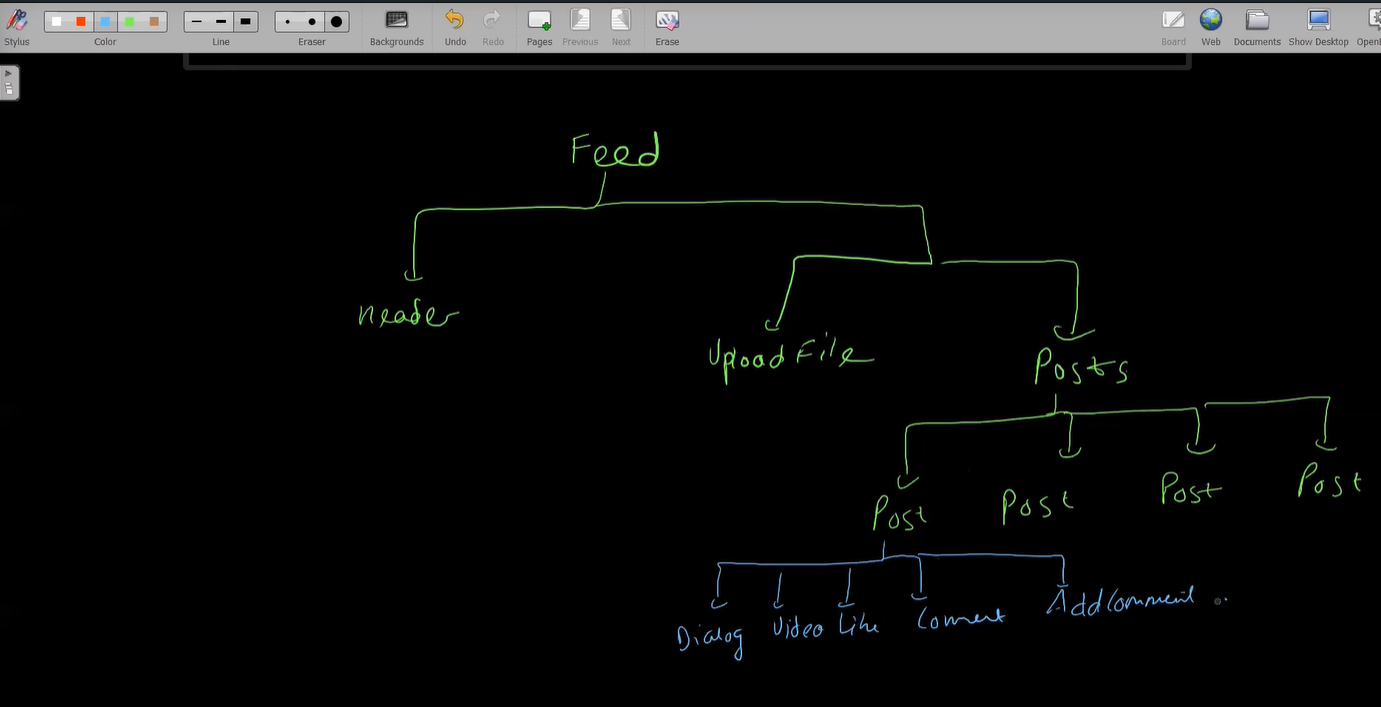 Stylus Color Line Eraser Backgrounds Undo Redo Pages Previous Next Erase Board Web Documents Show Desktop
Feed
header
Upload File
Posts
Post Post Post Post
Dialog Video Like Comment AddComment